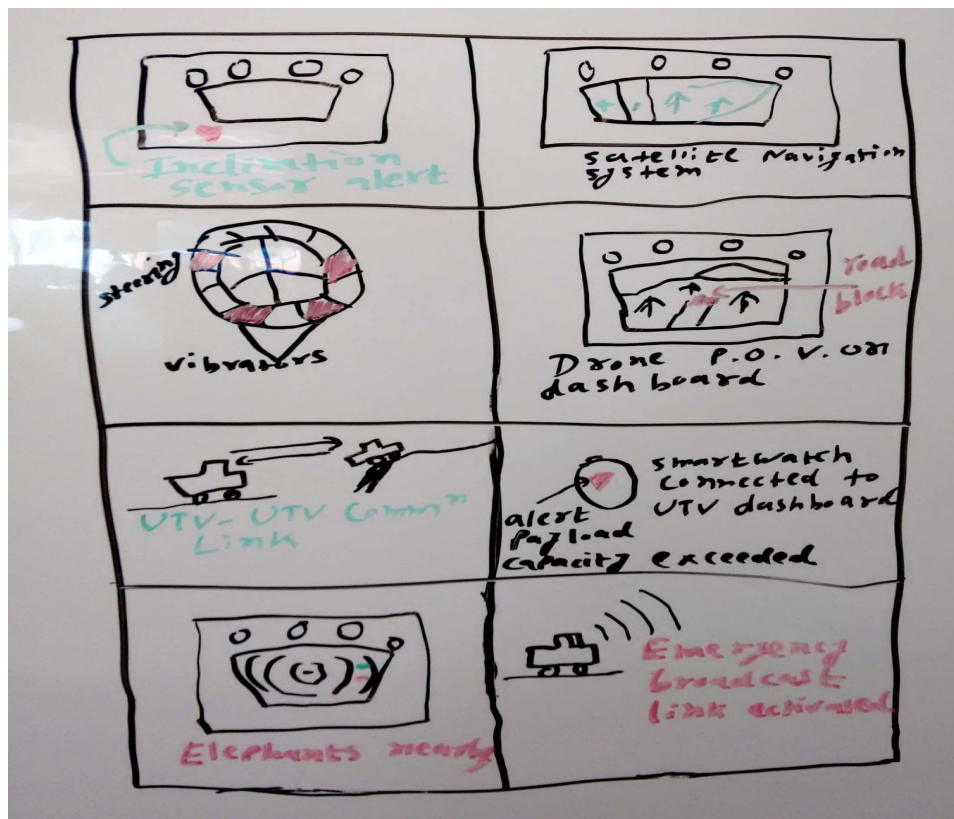 Inclination
sensor alert
satellite Navigation
system
steering
vibrators
road
block
Drone P.O.V. on
dash board
UTV-UTV Commⁿ
Link
smartwatch
connected to
UTV dashboard
alert
Payload
capacity exceeded
Elephants nearby
Emergency
broadcast
link activated